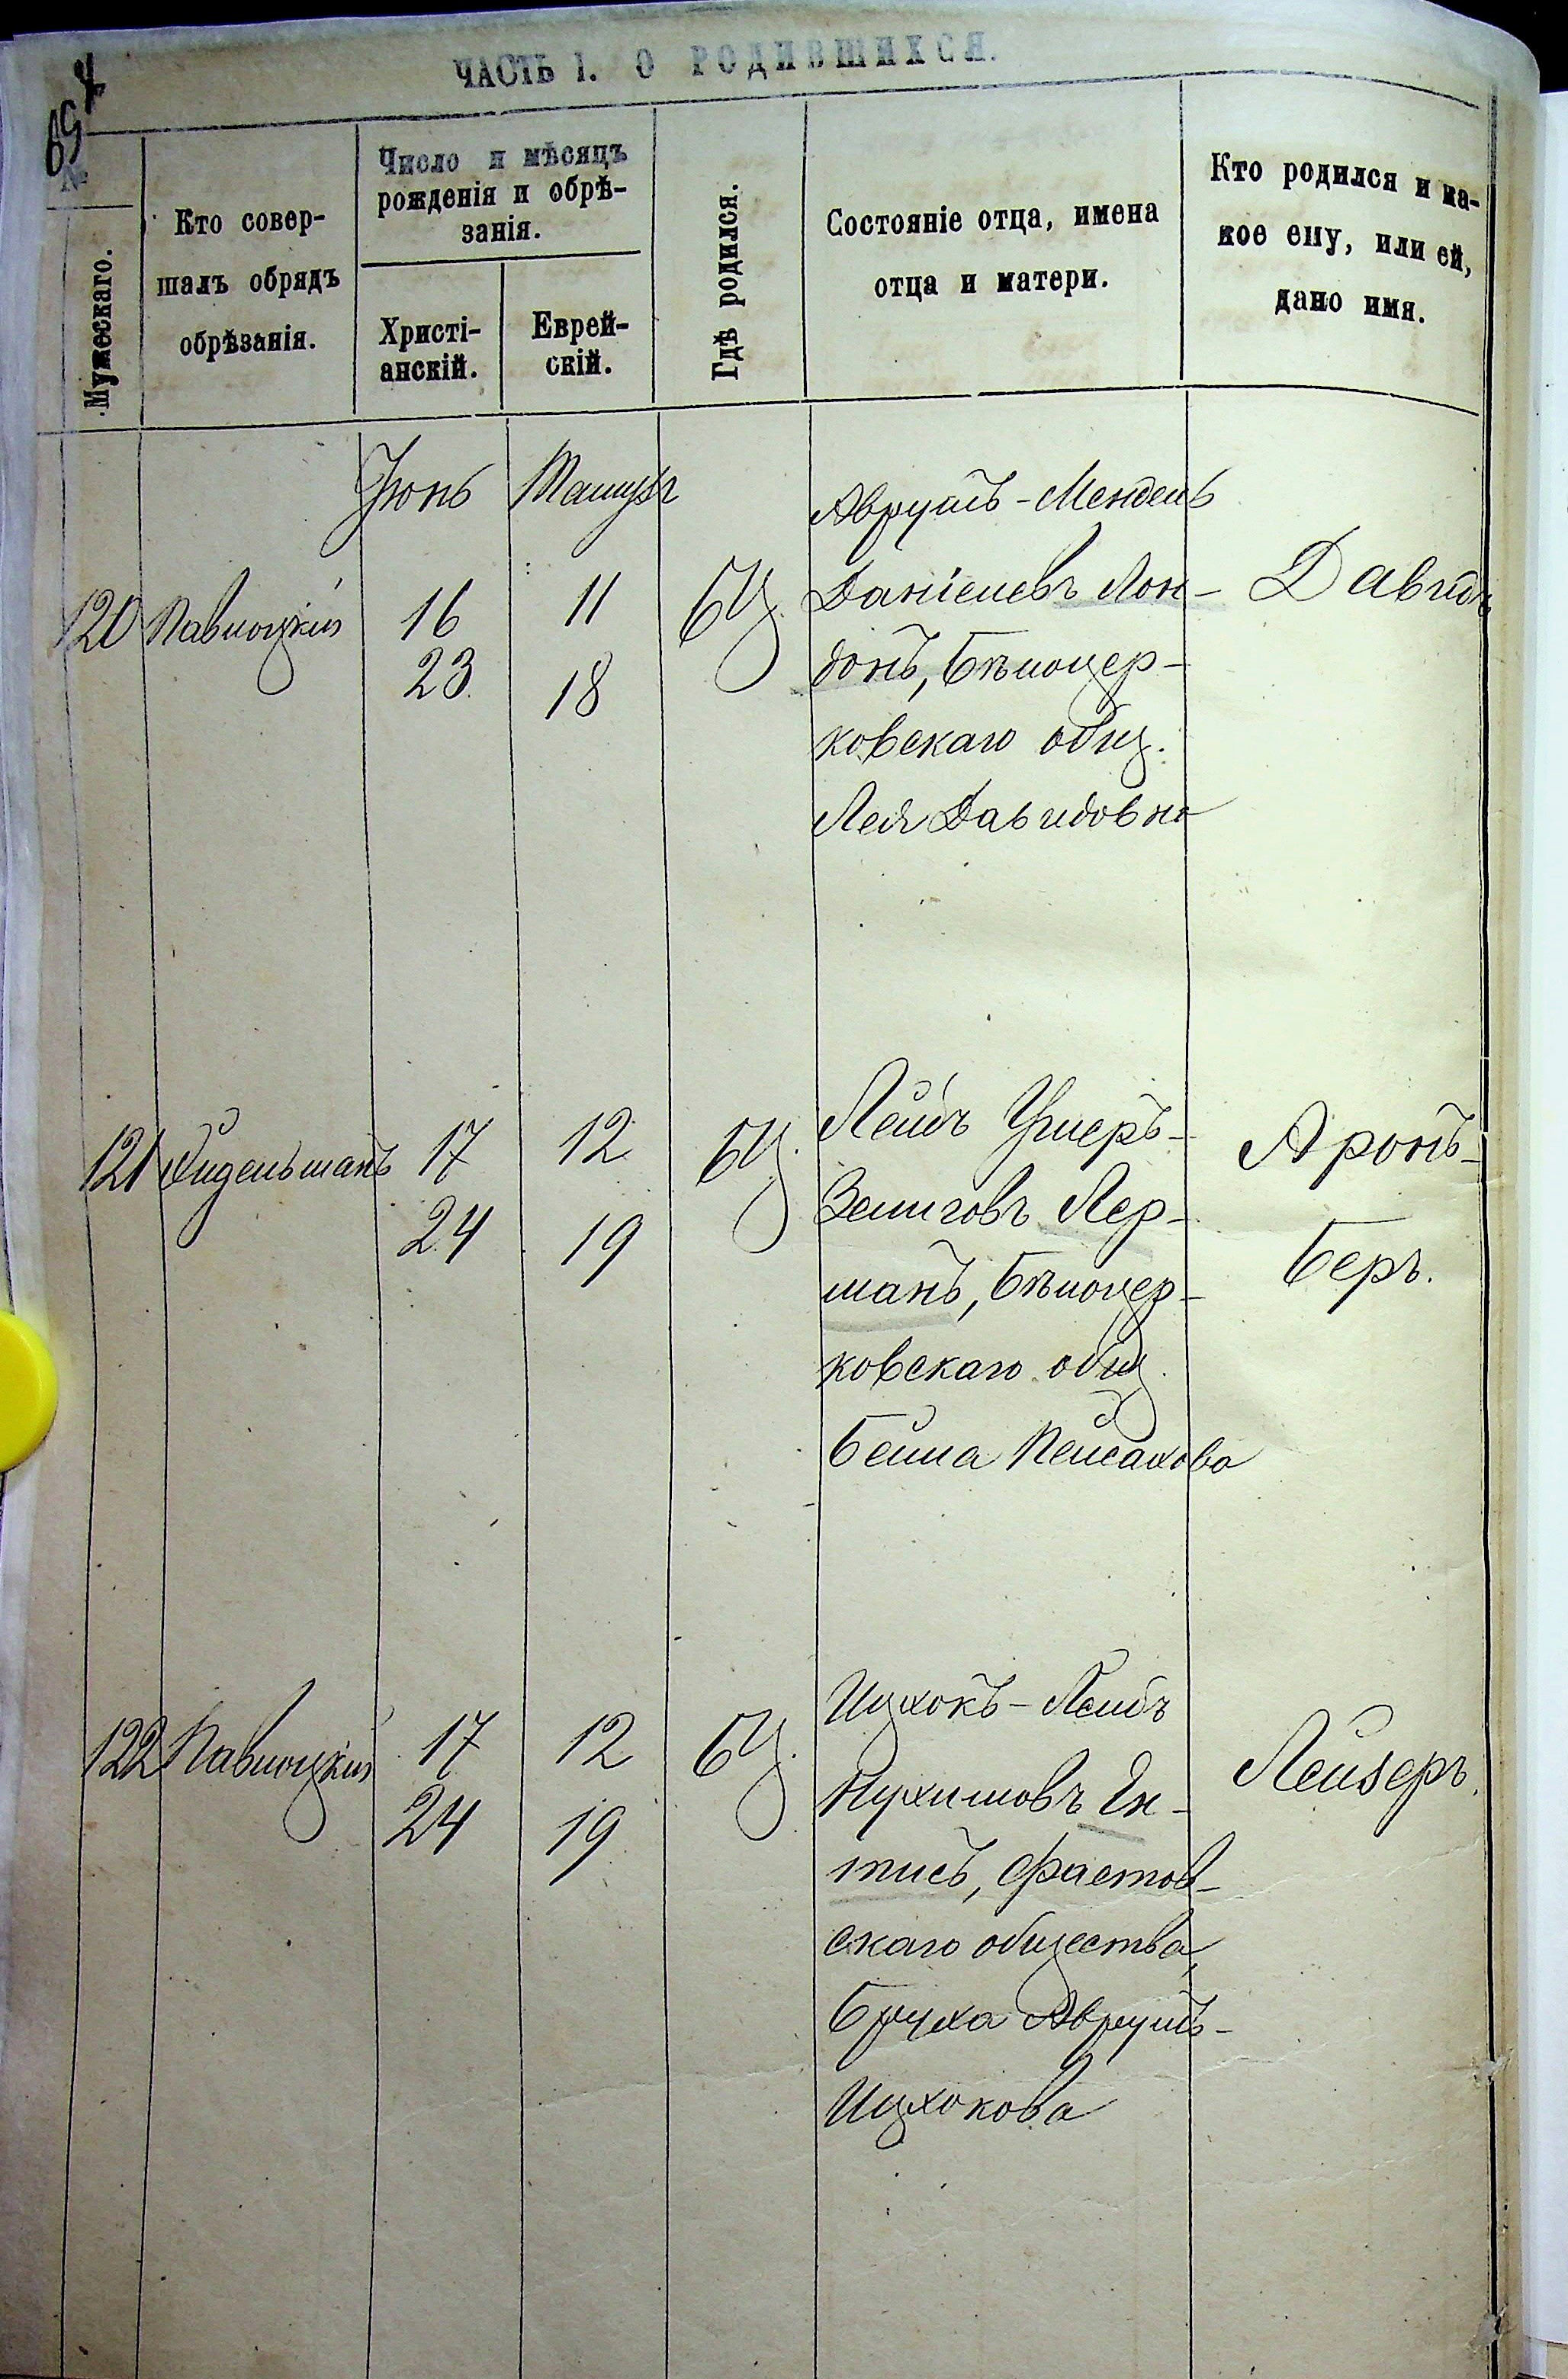 ЧАСТЬ I. О РОДИВШИХСЯ.
69
№
Мужескаго.
Кто совер-
шалъ обрядъ
обрѣзанія.
Число и мѣсяцъ
рожденія и обрѣ-
занія.
Христі-
анскій.
Еврей-
скій.
Гдѣ родился.
Состояніе отца, имена
отца и матери.
Кто родился и ка-
кое ему, или ей,
дано имя.
Іюнь Тамузъ
120 Павлоцкій 16 11 БЦ.
23 18
Аврумъ-Мендель
Даніелевъ Лон-
донъ, Бѣлоцер-
ковскаго общ.
Лея Давидовна
Давидъ
121 Фидельманъ 17 12 БЦ.
24 19
Лейбъ Ушеръ-
Зелиговъ Лер-
манъ, Бѣлоцер-
ковскаго общ.
Бейла Пейсахова
Аронъ-
Беръ.
122 Павлоцкій 17 12 БЦ.
24 19
Ицхокъ-Лейбъ
Нухимовъ Ен-
тисъ, Фастов-
скаго общества,
Бруха Аврумъ-
Ицхокова
Лейзеръ.